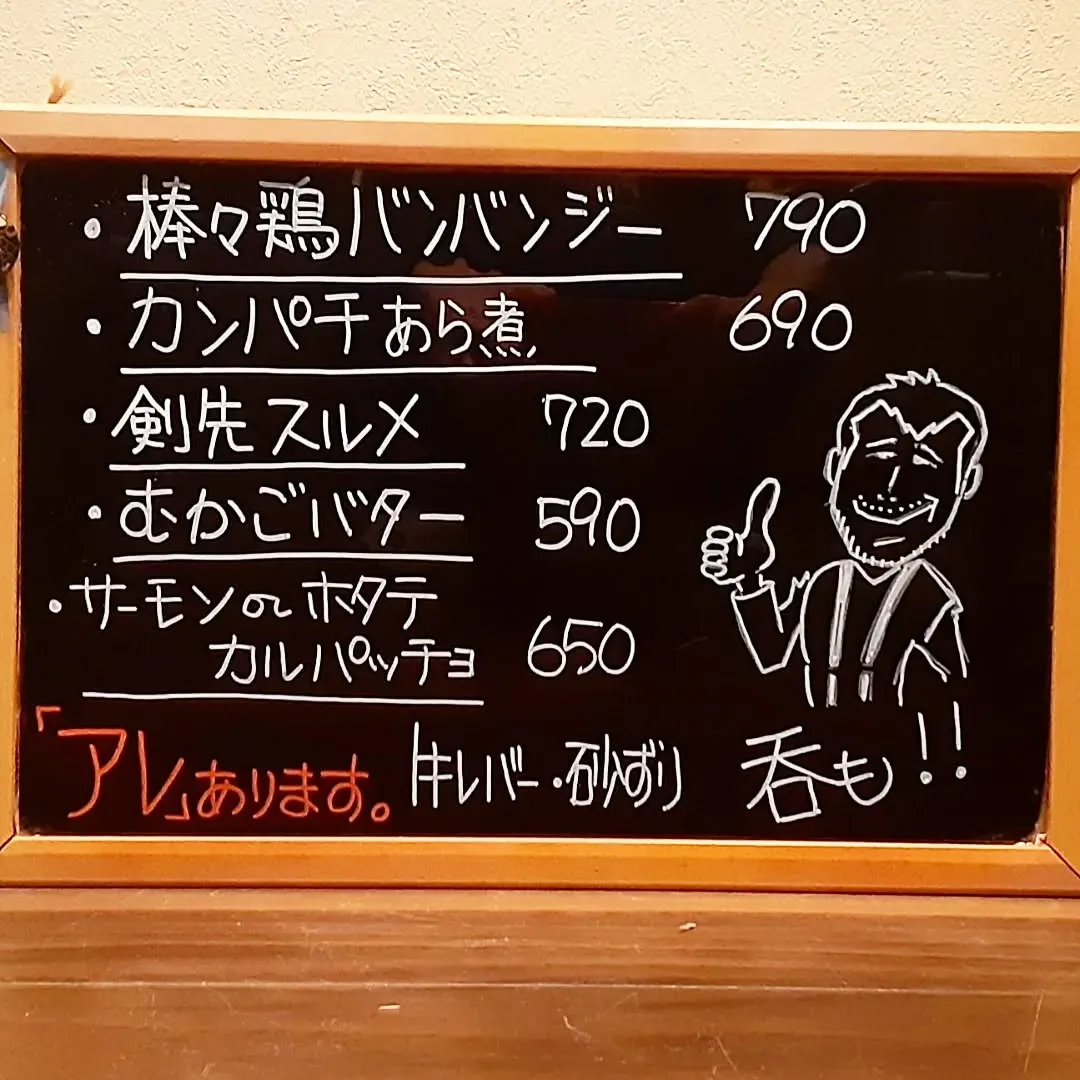 ・棒々鶏バンバンジー 790
・カンパチあら煮 690
・剣先スルメ 720
・むかごバター 590
・サーモンorホタテ
カルパッチョ 650
「アレ」あります。 キレバー・砂ずり 呑も!!